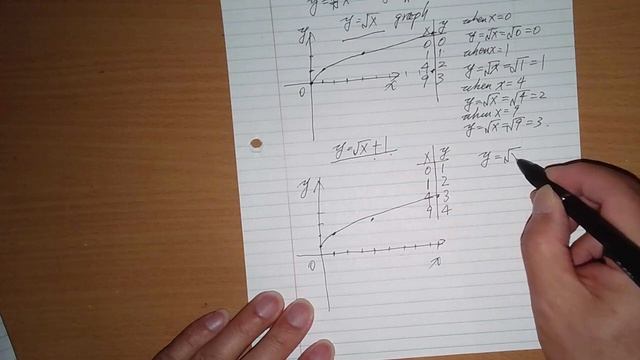 y=√x graph
y
0
x
x y
0 0
1 1
4 2
9 3
when x=0
y=√x=√0=0
when x=1
y=√x=√1=1
when x=4
y=√x=√4=2
when x=9
y=√x=√9=3.
y=√x+1
y
0
x
x y
0 1
1 2
4 3
9 4
y=√